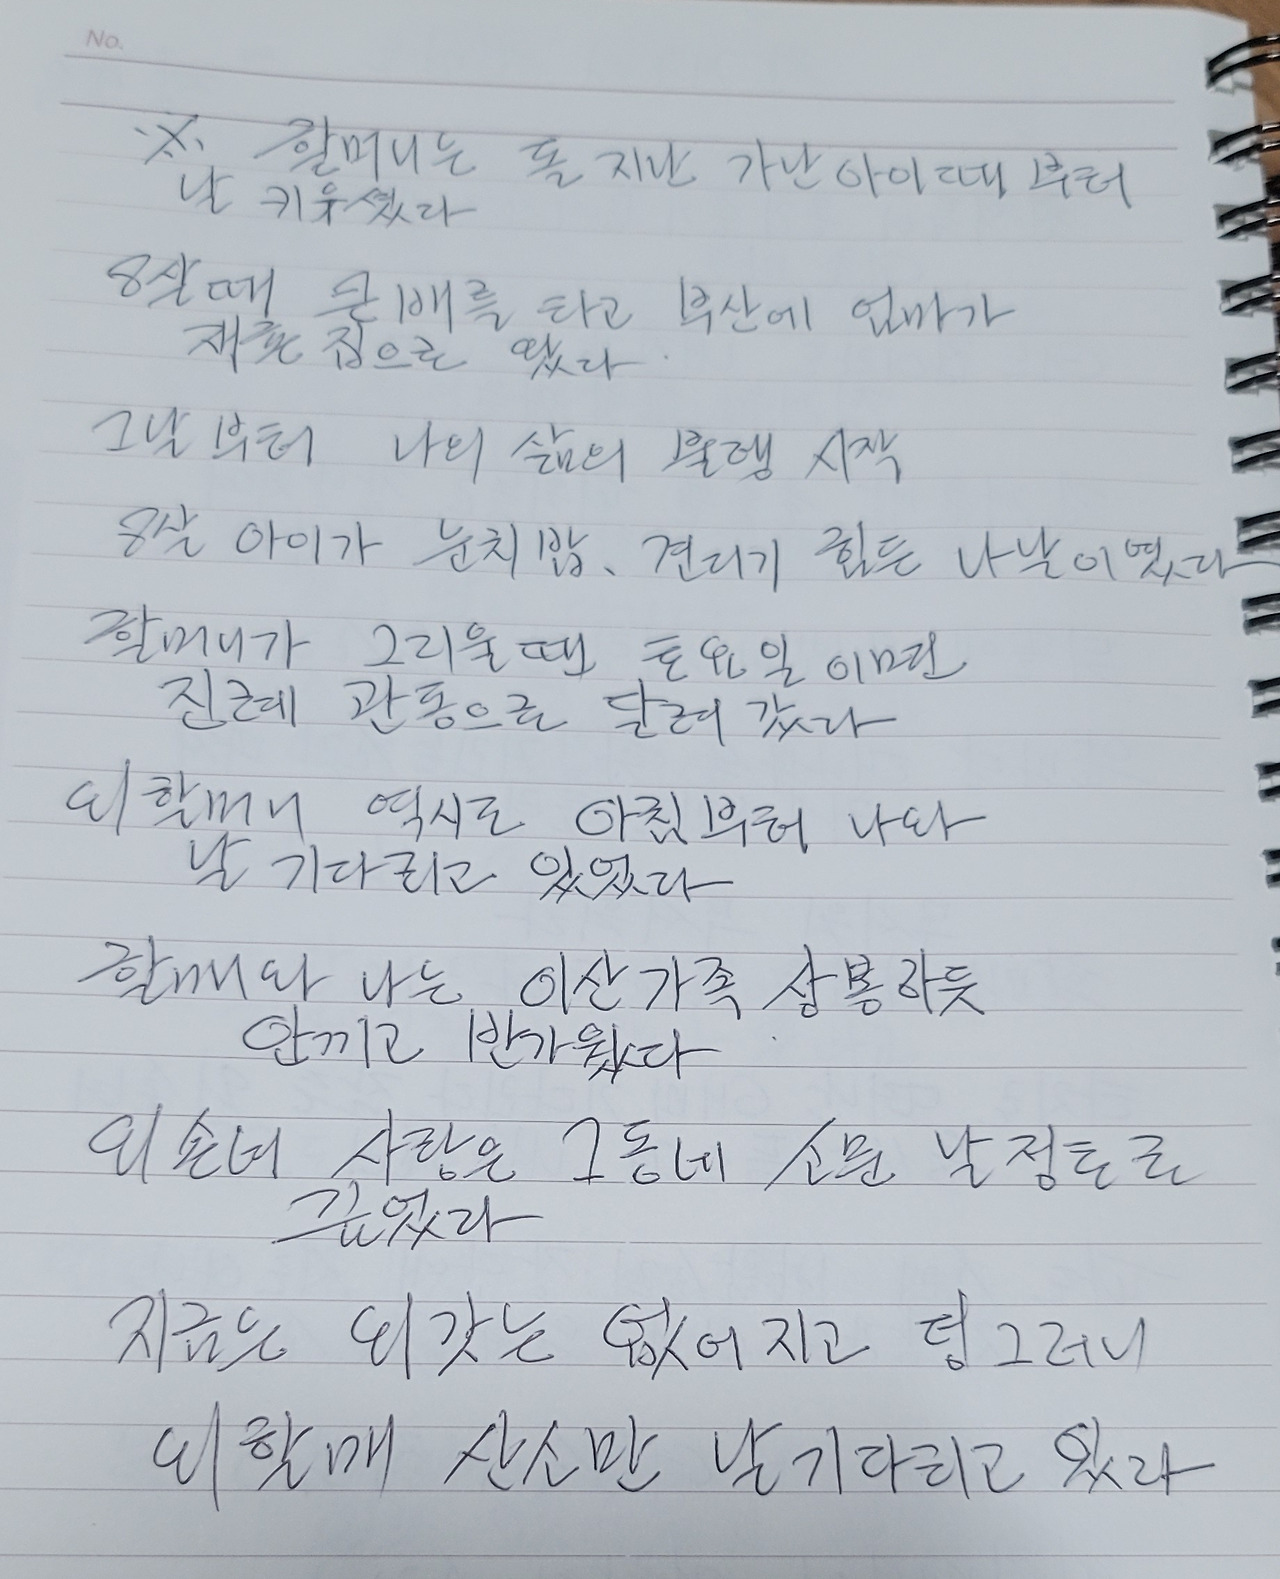 No.
※ 할머니는 돌 지난 가난아이때부터
날 키우셨다
8살때 큰배를 타고 부산에 엄마가
재혼 집으로 왔다
그날부터 나의 삶의 불행 시작
8살 아이가 눈치밥、견디기 힘든 나날이였다
할머니가 그리울때 토요일이면
진례 관동으로 달려 갔다
외할머니 역시도 아침부터 나와
날 기다리고 있었다
할매와 나는 이산가족 상봉하듯
안끼고 반가웠다
외손녀 사랑은 그동네 소문 날정도로
깊었다
지금은 외갓는 없어지고 텅그러니
외할매 산소만 날기다리고 있다